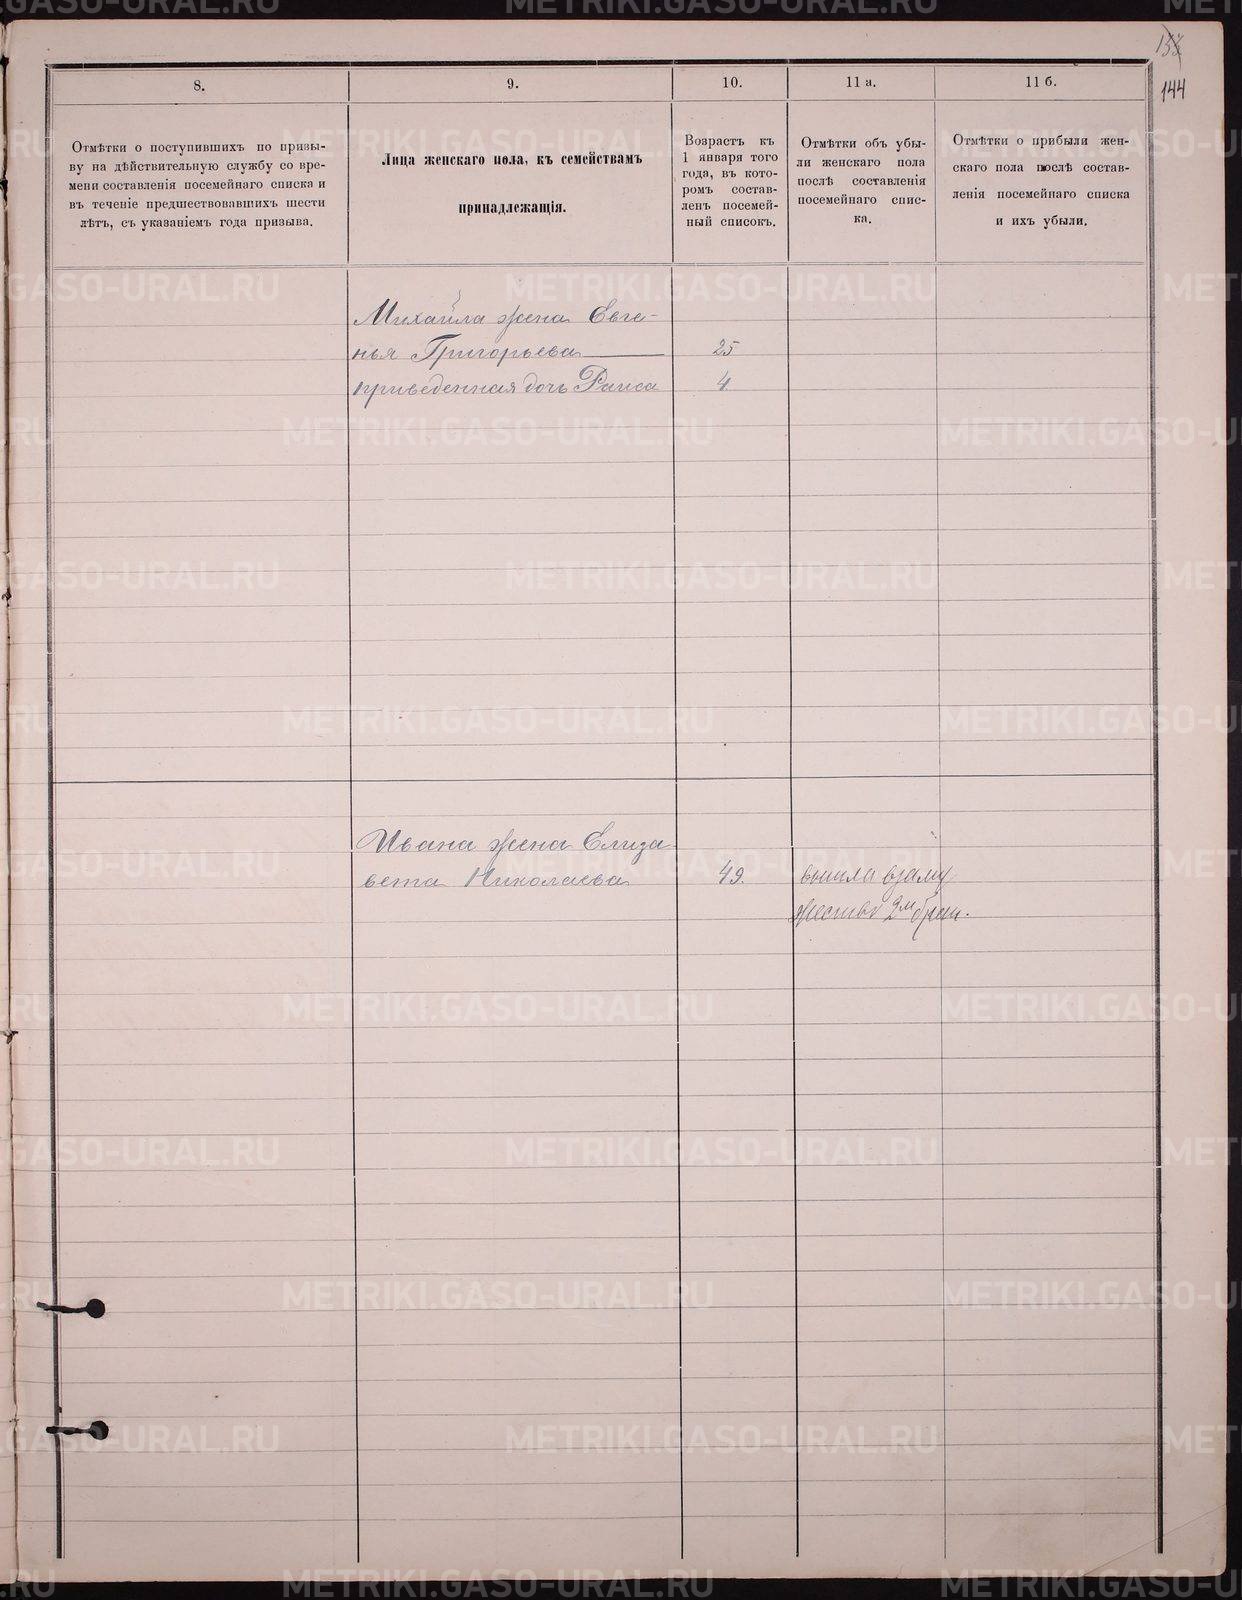 144
8.
9.
10.
11 а.
11 б.
Отмѣтки о поступившихъ по призы-
ву на дѣйствительную службу со вре-
мени составленія посемейнаго списка и
въ теченіе предшествовавшихъ шести
лѣтъ, съ указаніемъ года призыва.
Лица женскаго пола, къ семействамъ
принадлежащія.
Возрастъ къ
1 января того
года, въ кото-
ромъ состав-
ленъ посемей-
ный списокъ.
Отмѣтки объ убы-
ли женскаго пола
послѣ составленія
посемейнаго спис-
ка.
Отмѣтки о прибыли жен-
скаго пола послѣ состав-
ленія посемейнаго списка
и ихъ убыли.
Михаила жена Евге-
нья Григорьева 25
приведенная дочь Раиса 4
Ивана жена Елиза
вета Николаева 49. вышла взаму
жество 2м брак.
METRIKI.GASO-URAL.RU